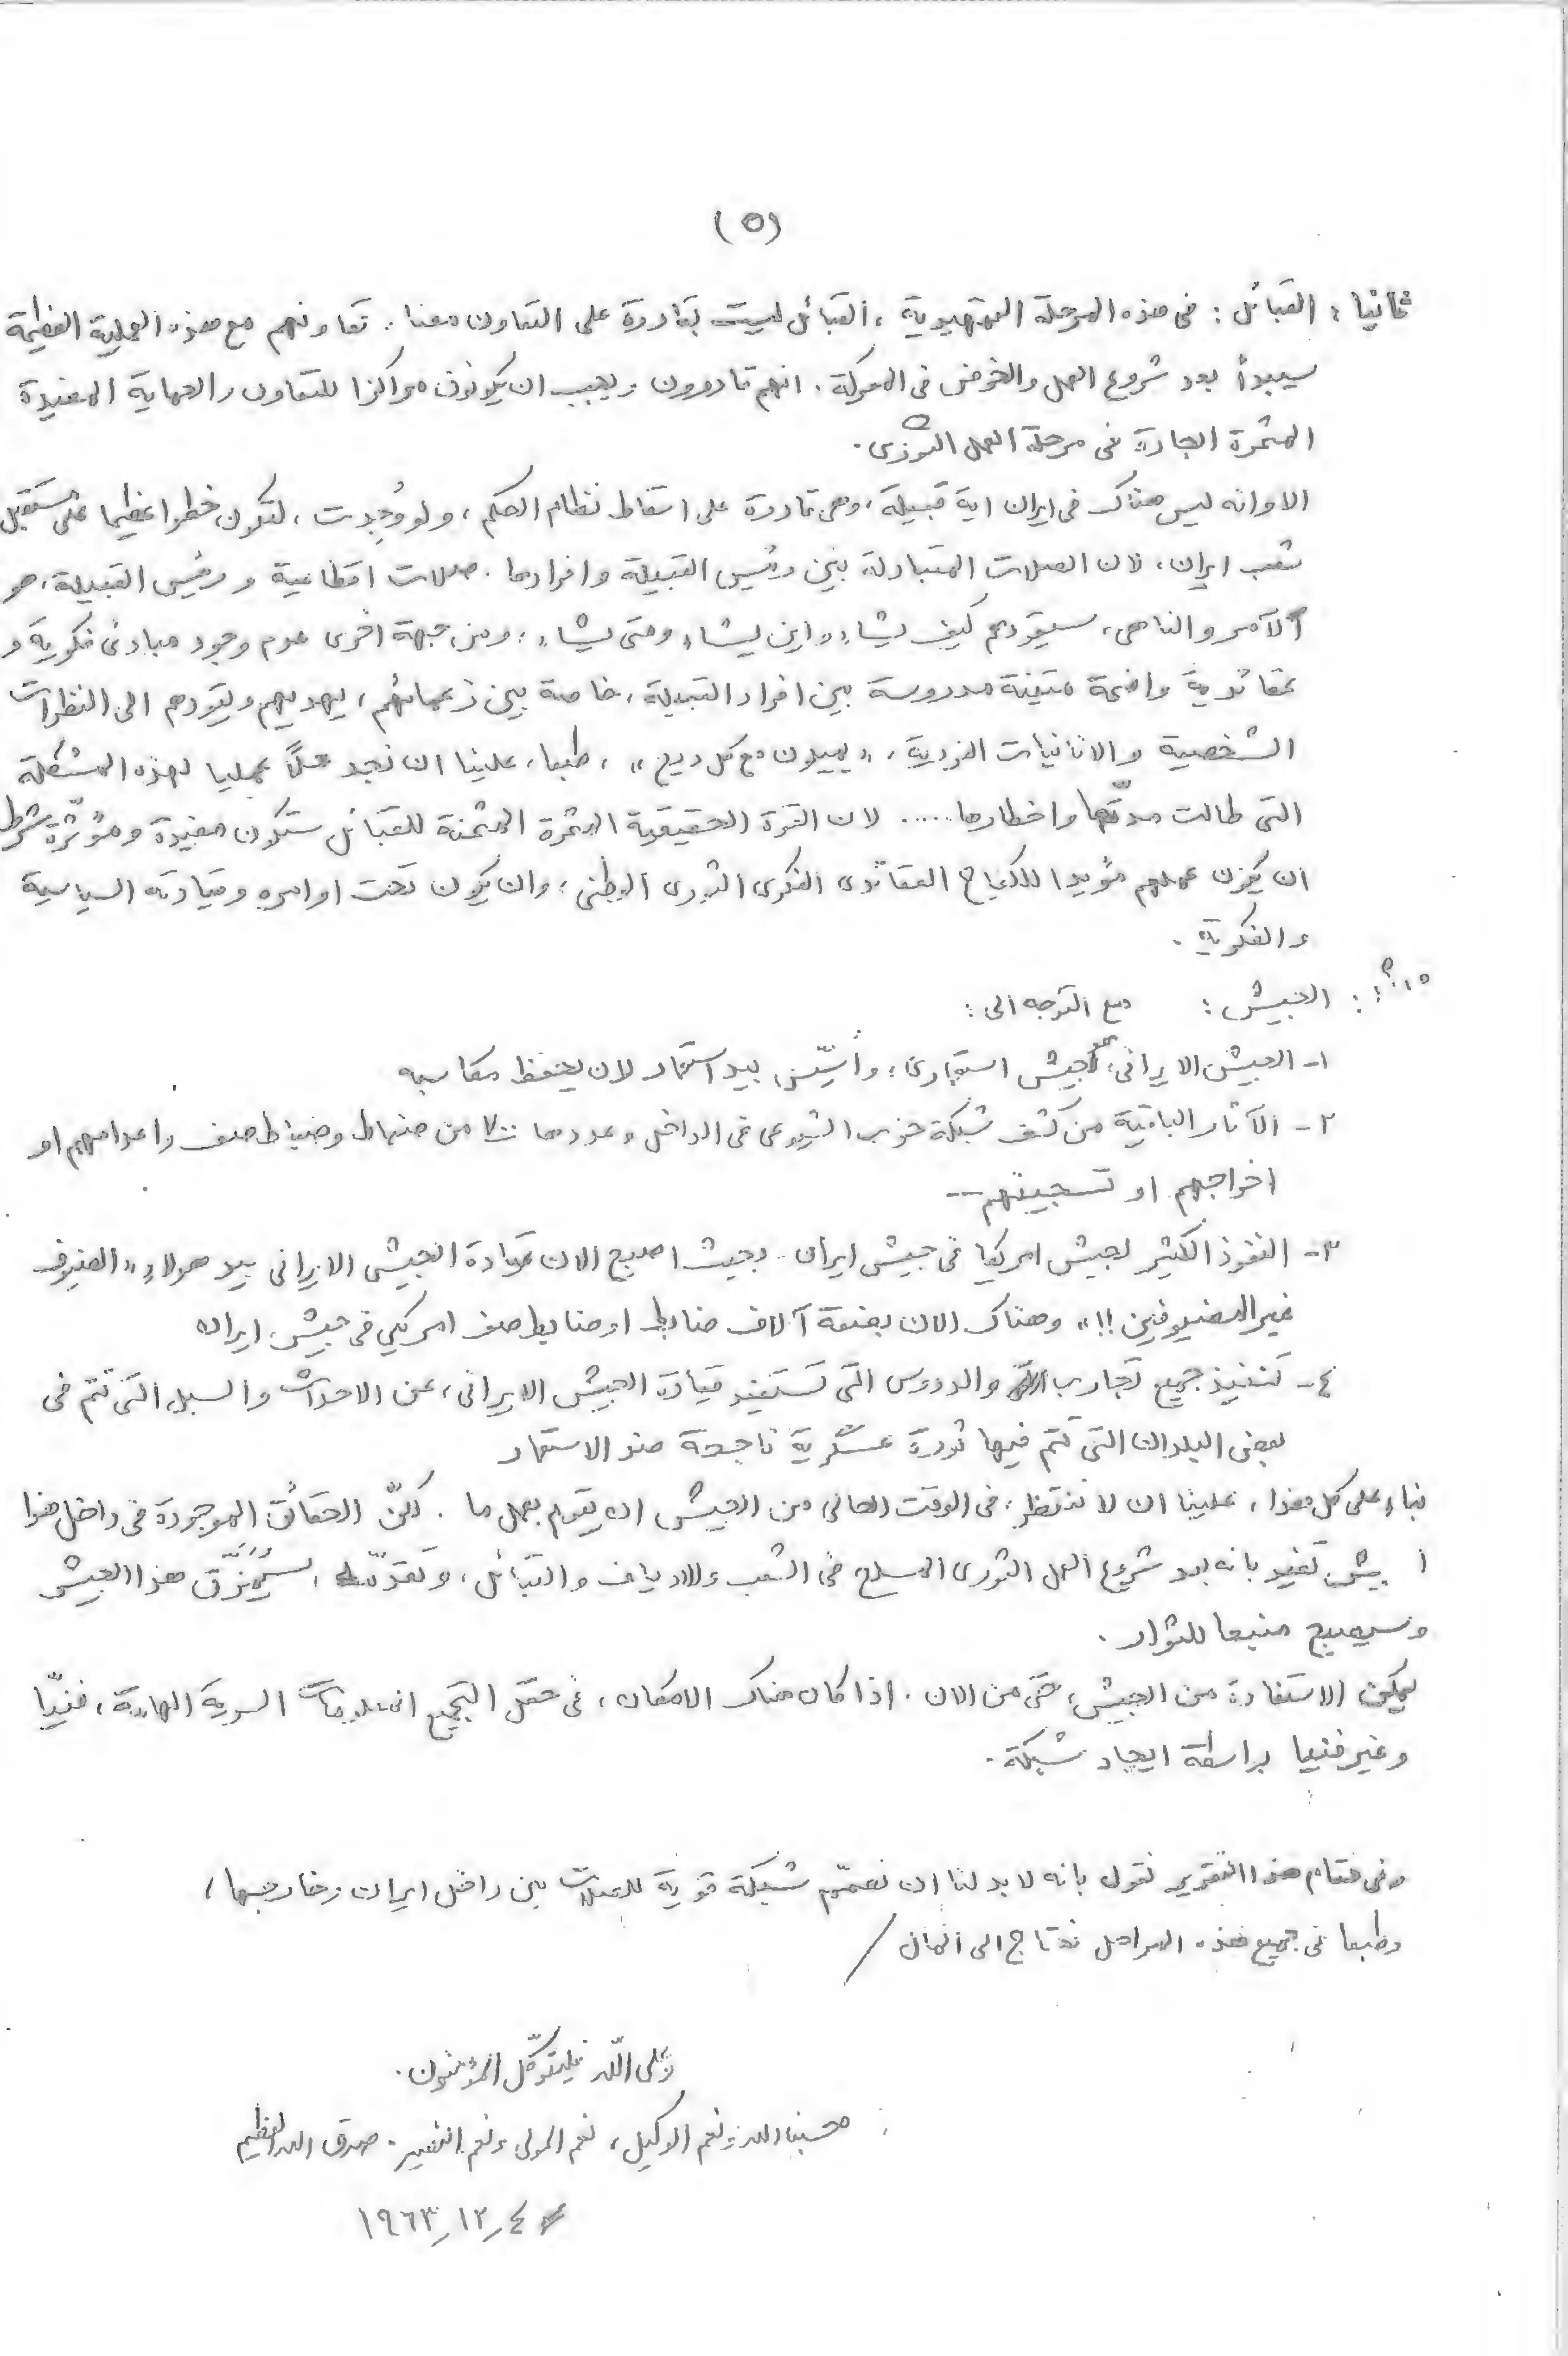 (٥)
ثانيا : القبائل : فى هذه المرحلة التمهيدية ، القبائل ليست بقادرة على التعاون معنا . تعاونهم مع هذه العملية العظيمة
سيبدأ بعد شروع العمل والخوض فى المعركة . انهم قادرون ويجب ان يكونون مراكزا للتعاون والحماية المفيدة
المثمرة الجادة فى مرحلة العمل الثورى .
الا وانه ليس هناك فى ايران اية قبيلة ، وهى قادرة على اسقاط نظام الحكم ، ولو وُجِدت ، لتكون خطرا عظيما على مستقبل
شعب ايران ، لان الصلات المتبادلة بين رئيس القبيلة وافرادها . صلات اقطاعية ورئيس القبيلة ، هو
الآمر والناهى ، سيقودهم كيف يشاء واين يشاء ومتى يشاء ؛ ومن جهة اخرى عدم وجود مبادئ فكرية و
عقائدية واضحة متينة مدروسة بين افراد القبيلة ، خاصة بين زعمائهم ، يهديهم ويقودهم الى النظرات
الشخصية والانانيات الفردية ، « يميلون مع كل ريح » ، طبعا ، علينا ان نجد حلاً عمليا لهذه المشكلة
التى طالت مدتّها واخطارها ..... لان القوة الحقيقية المثمرة المثمنة للقبائل ستكون مفيدة ومؤثّرة شرط
ان يكون عملهم مؤيدا للكفاح العقائدى الفكرى الثورى الوطنى ؛ وان يكون تحت اوامره وقيادته السياسية
والفكرية .
: الجيش : مع التوجه الى :
١- الجيش الايرانى ، هو جيش استعمارى ؛ وأسّس بيد استعمار لان يحفظ مكاسبه
٢- الآثار الباقية من كشف شبكة حزب الشيوعى فى الداخل وعددها ٧٠٠ من ضباط وضباط صف واعدامهم او
اخراجهم او تسجينهم --
٣- النفوذ الكثير لجيش امريكا فى جيش ايران . بحيث اصبح الان قيادة الجيش الايرانى بيد هولاء « الضيوف
غير المضيوفين !! » وهناك الان بضعة آلاف ضابط او ضابط صف امركي فى جيش ايران
٤- تنفيذ جميع تجارب والدروس التى تستفيد قيادة الجيش الايرانى ، عن الاحداث والسبل التى تتم فى
بعض البلدان التى تتم فيها ثورة عسكرية ناجحة ضد الاستعمار
بناء على كل هذا ، علينا ان لا ننتظر ، فى الوقت الحالى من الجيش ان يقوم بعمل ما . لكنّ الحقائق الموجودة فى داخل هذا
الجيش تفيد بانه بعد شروع العمل الثورى المسلح فى الشعب والارياف والقبائل ، وتقدّمه ، سيُمزّق هذا الجيش
وسيصبح منبعا للثوار .
يمكن الاستفادة من الجيش ، حتى من الان . اذا كان هناك الامكان ، فى حقل التجميع المعلومات السرية الهامة ، فنيّا
وغير فنيا بواسطة ايجاد شبكة .
وفى ختام هذا التقرير نقول بانه لا بد لنا ان نصمّم شبكة قوية للصلات بين داخل ايران وخارجها ،
وطبعا فى جميع هذه المراحل نحتاج الى اتمان /
وعلى اللّه فليتوكّل المؤمنون .
حسبنا الله ونعم الوكيل ، نعم المولى ونعم النصير . صدق الله العظيم
٤ر١٢ر١٩٦٣